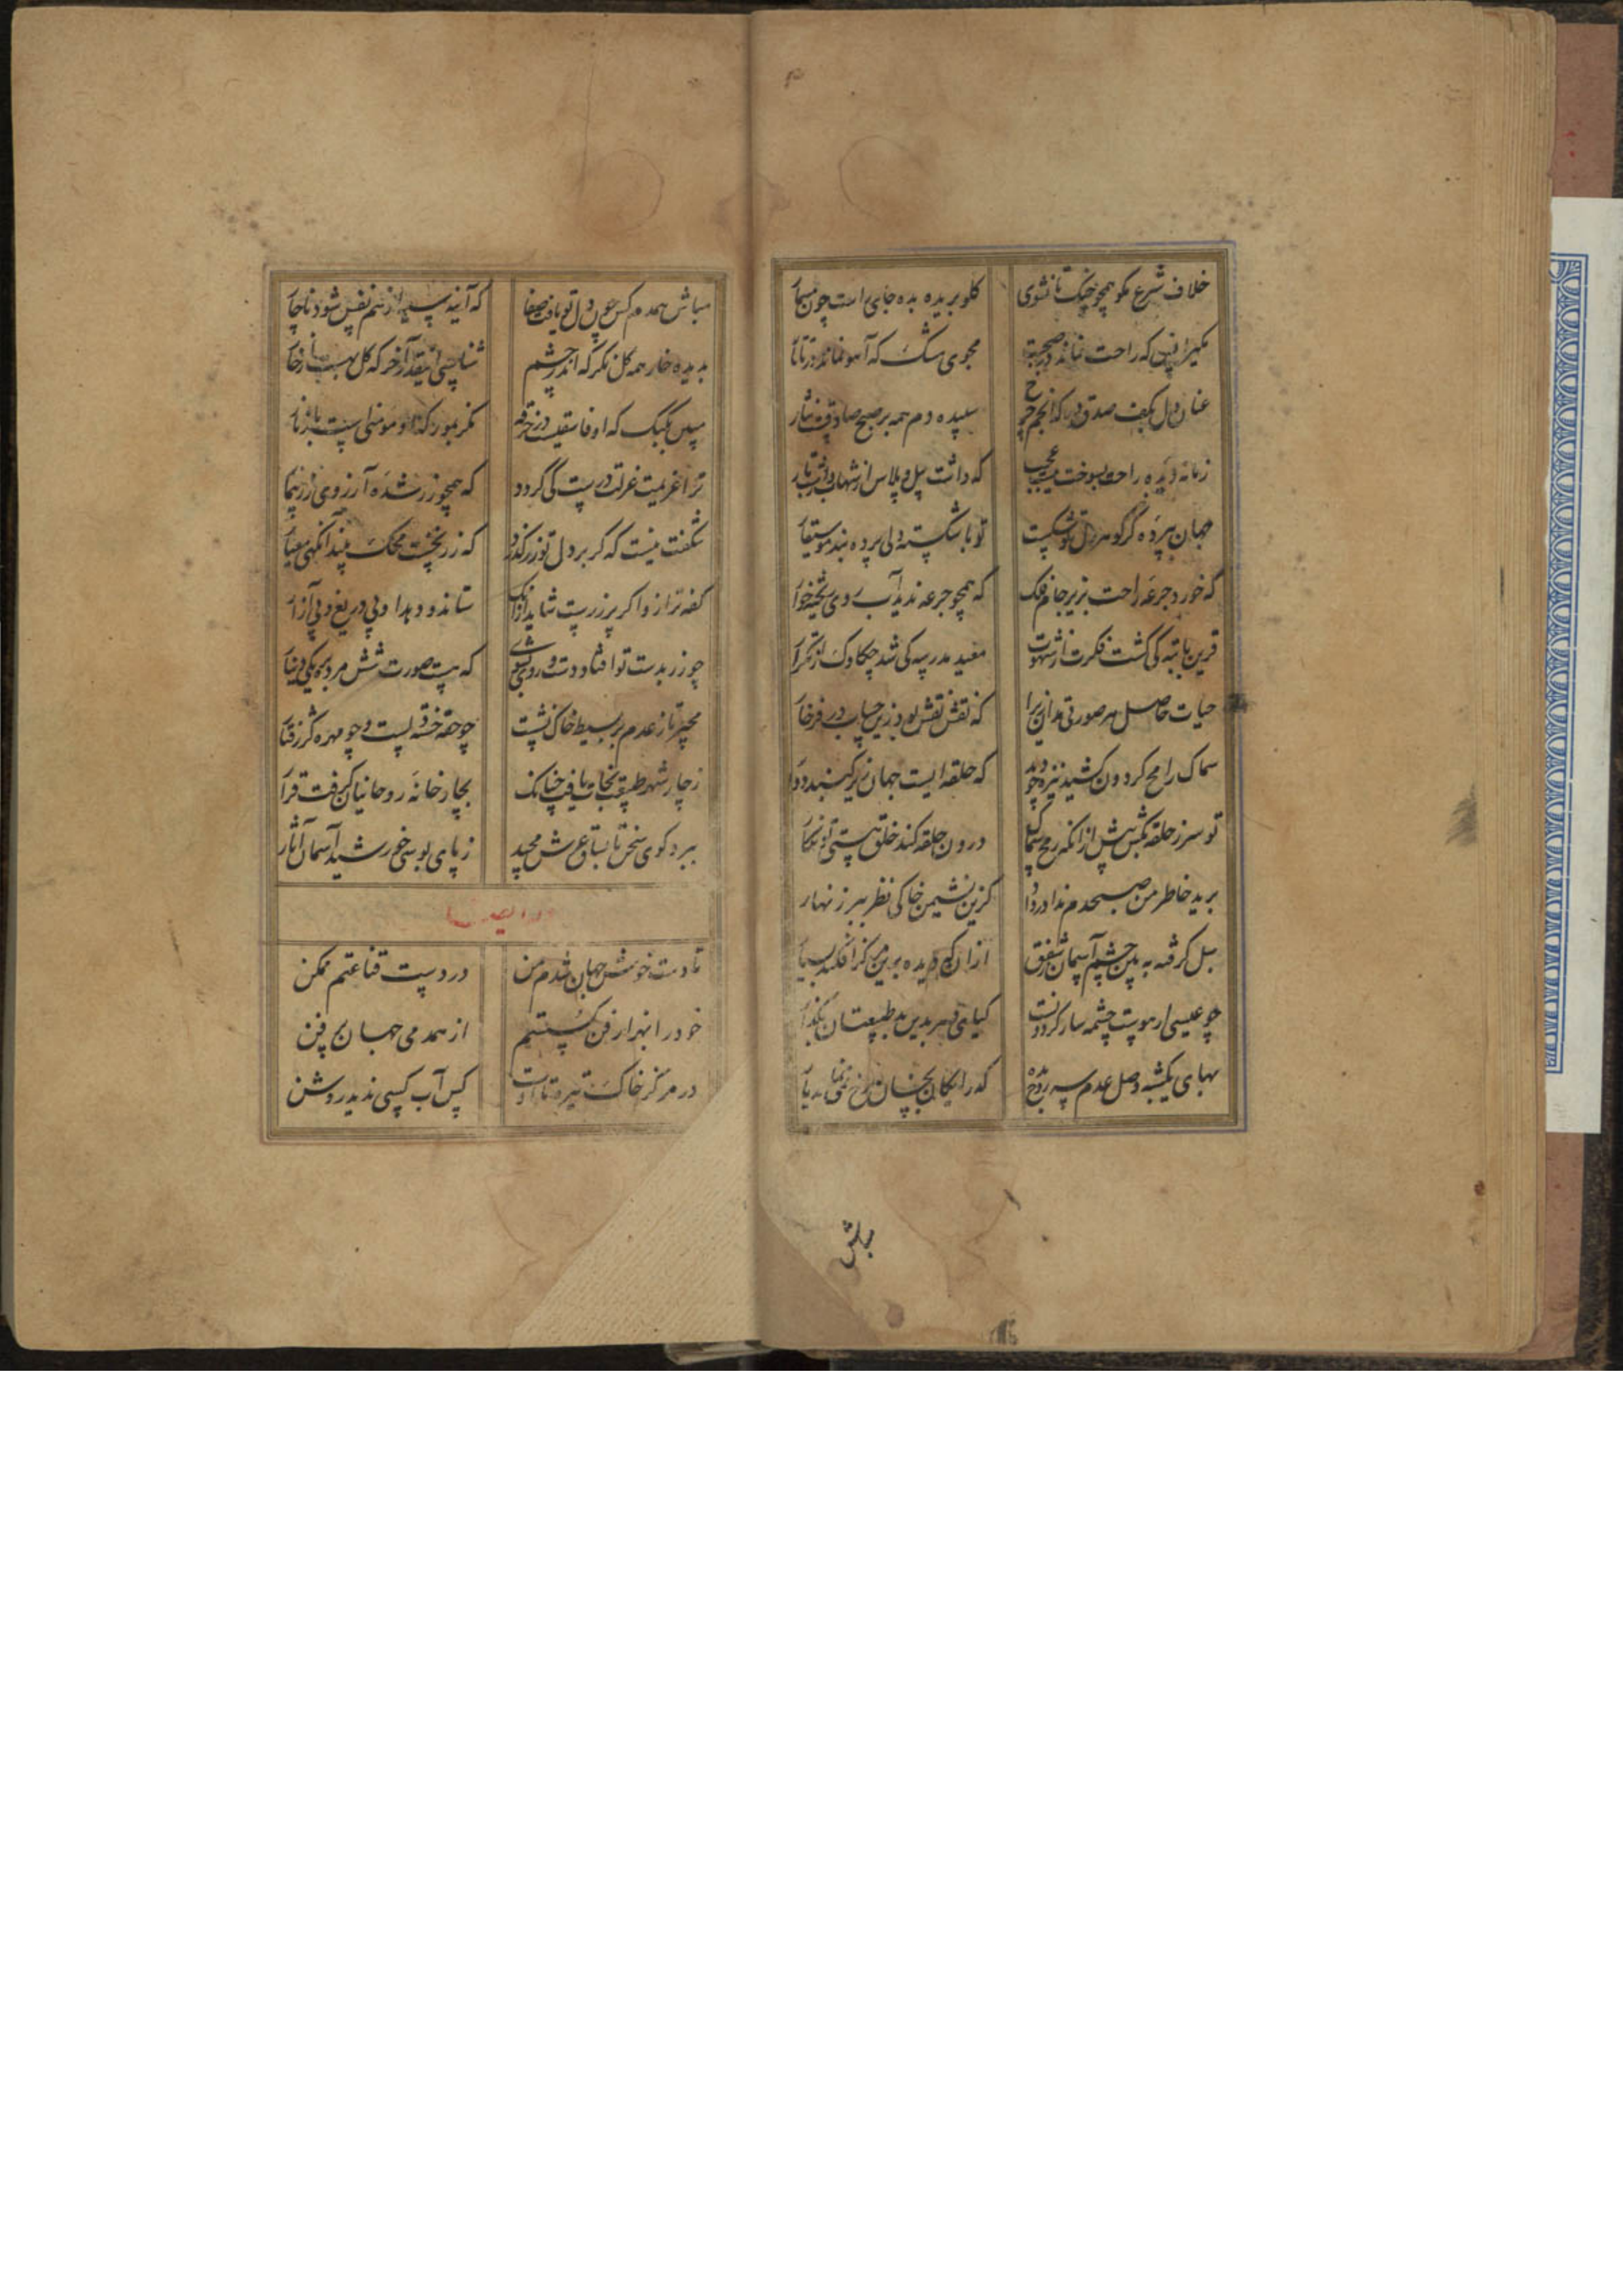 خلاف شرع مگو همچو چنگ تا نشوی
گلو بریده بده جای راست چون مسمار
مگیر انس که راحت نماند در صحبت
مجوی مشک که آهو نماند در تاتار
عنان دل بکف صدق ده که انجم چرخ
سپیده دم همه بر صبح صادقست نثار
زمانه دیده راحت بسوخت نیست عجب
که داشت پیل و پلاس از شهاب
جهان پرده گر گوهر دل تو شکست
تو با شکسته دلی پرده بند موسیقار
که خورد جرعه راحت بزیر جام فلک
که همچو جرعه ندید آب روی ریخته خوار
قرین تا به کی گشت فکرت از شهوت
مفید مدرسه کی شد چکاوک از تکرار
حیات حاصل هر صورتی مدان زیرا
که نقش نفش بود زین حساب در فرخار
سماک رامح گردون کشید نیزه چو دید
که حلقه ایست جهان زیر گنبد دوار
تو سر ز حلقه بکش پیش از آنکه رمح سماک
درون حلقه کند خلق هستی تو نگار
برید خاطر من صبحدم ندا در داد
کزین نشیمن خاکی نظر ببر زنهار
سبل گرفته به بین چشم آسمان ز شفق
از آن که دیده برین می کرا فکند بسیار
چو عیسی ار هوست چشمه سار گردونست
گیاه دهر بدین بد طبیعتان بگذار
بهای یکشبه وصل عدم سه روح بده
که رایگان بخسان رخ نمی نماید یار
مباش
مباش همدم کس چون دل تو یافت صفا
که آینه سیه از هم نفس شود ناچار
بدیده خار همه گل نگر که اندر چشم
ثناپسی آنقدر آخر که گل به است از خار
مبین بکبک که او فاسقیست در خرقه
نگر بمور که او مومنی است با زنار
ترا عزیمت عزلت درست کی گردد
که همچو زر شده آرزوی زر بیمار
شگفت نیست که گر بر دل تو زر گذرد
که زر نخست محک بیند آنگهی معیار
کفه ترازو اگر پر زر است شاید از آنک
ستاند و دهد او بی دریغ و بی آزار
چو زر بدست تو افتاد دست و روی بشوی
که هست صورت شش مرده بر یکی دینار
مجیر تا ز عدم بر بسیط خاک نشست
چو حقه خسته لبست و چو مهره کژ رفتار
ز چار شهر طبیعت نجات یافت چنانک
بچار خانه روحانیان گرفت قرار
ببرد گوی سخن تا بساق عرش مجید
ز پای بوسی خورشید آسمان آثار
وله ایضا
تا دست خوش جهان شدم من
در دست قناعتم ممکن
خود را بهزار فن گسستم
از همدمی جهان پر فن
در مرکز خاک تیره تا اوست
کس آب کسی ندید روشن